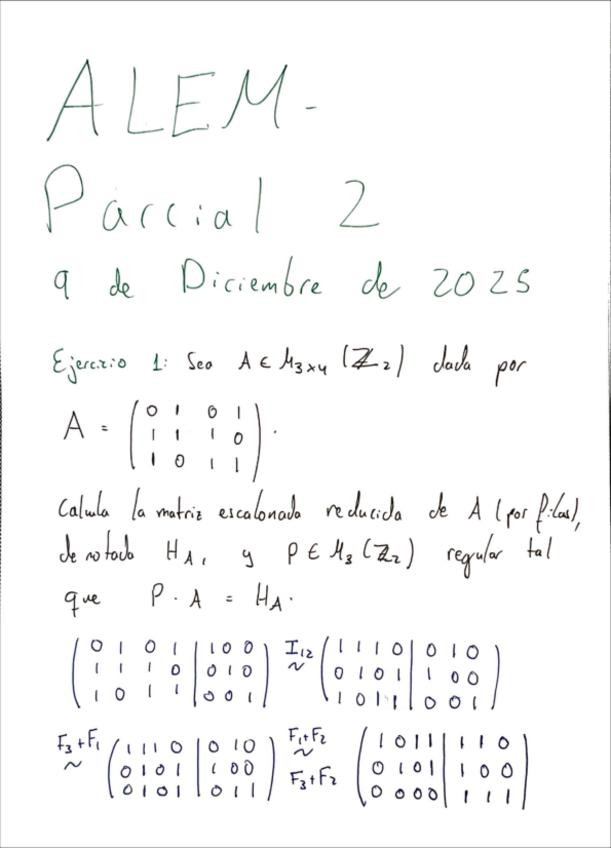 ALEM -
Parcial 2
9 de Diciembre de 2025
Ejercicio 1: Sea A ∈ M₃ₓ₄ (ℤ₂) dada por
A = ( 0 1 0 1
1 1 1 0
1 0 1 1 ) .
Calcula la matriz escalonada reducida de A (por filas),
denotada H_A, y P ∈ M₃ (ℤ₂) regular tal
que P · A = H_A.
( 0 1 0 1 | 1 0 0 ) I₁₂ ( 1 1 1 0 | 0 1 0 )
( 1 1 1 0 | 0 1 0 ) ~ ( 0 1 0 1 | 1 0 0 )
( 1 0 1 1 | 0 0 1 ) ( 1 0 1 1 | 0 0 1 )
F₃+F₁ ( 1 1 1 0 | 0 1 0 ) F₁+F₂ ( 1 0 1 1 | 1 1 0 )
~ ( 0 1 0 1 | 1 0 0 ) ~ ( 0 1 0 1 | 1 0 0 )
( 0 1 0 1 | 0 1 1 ) F₃+F₂ ( 0 0 0 0 | 1 1 1 )